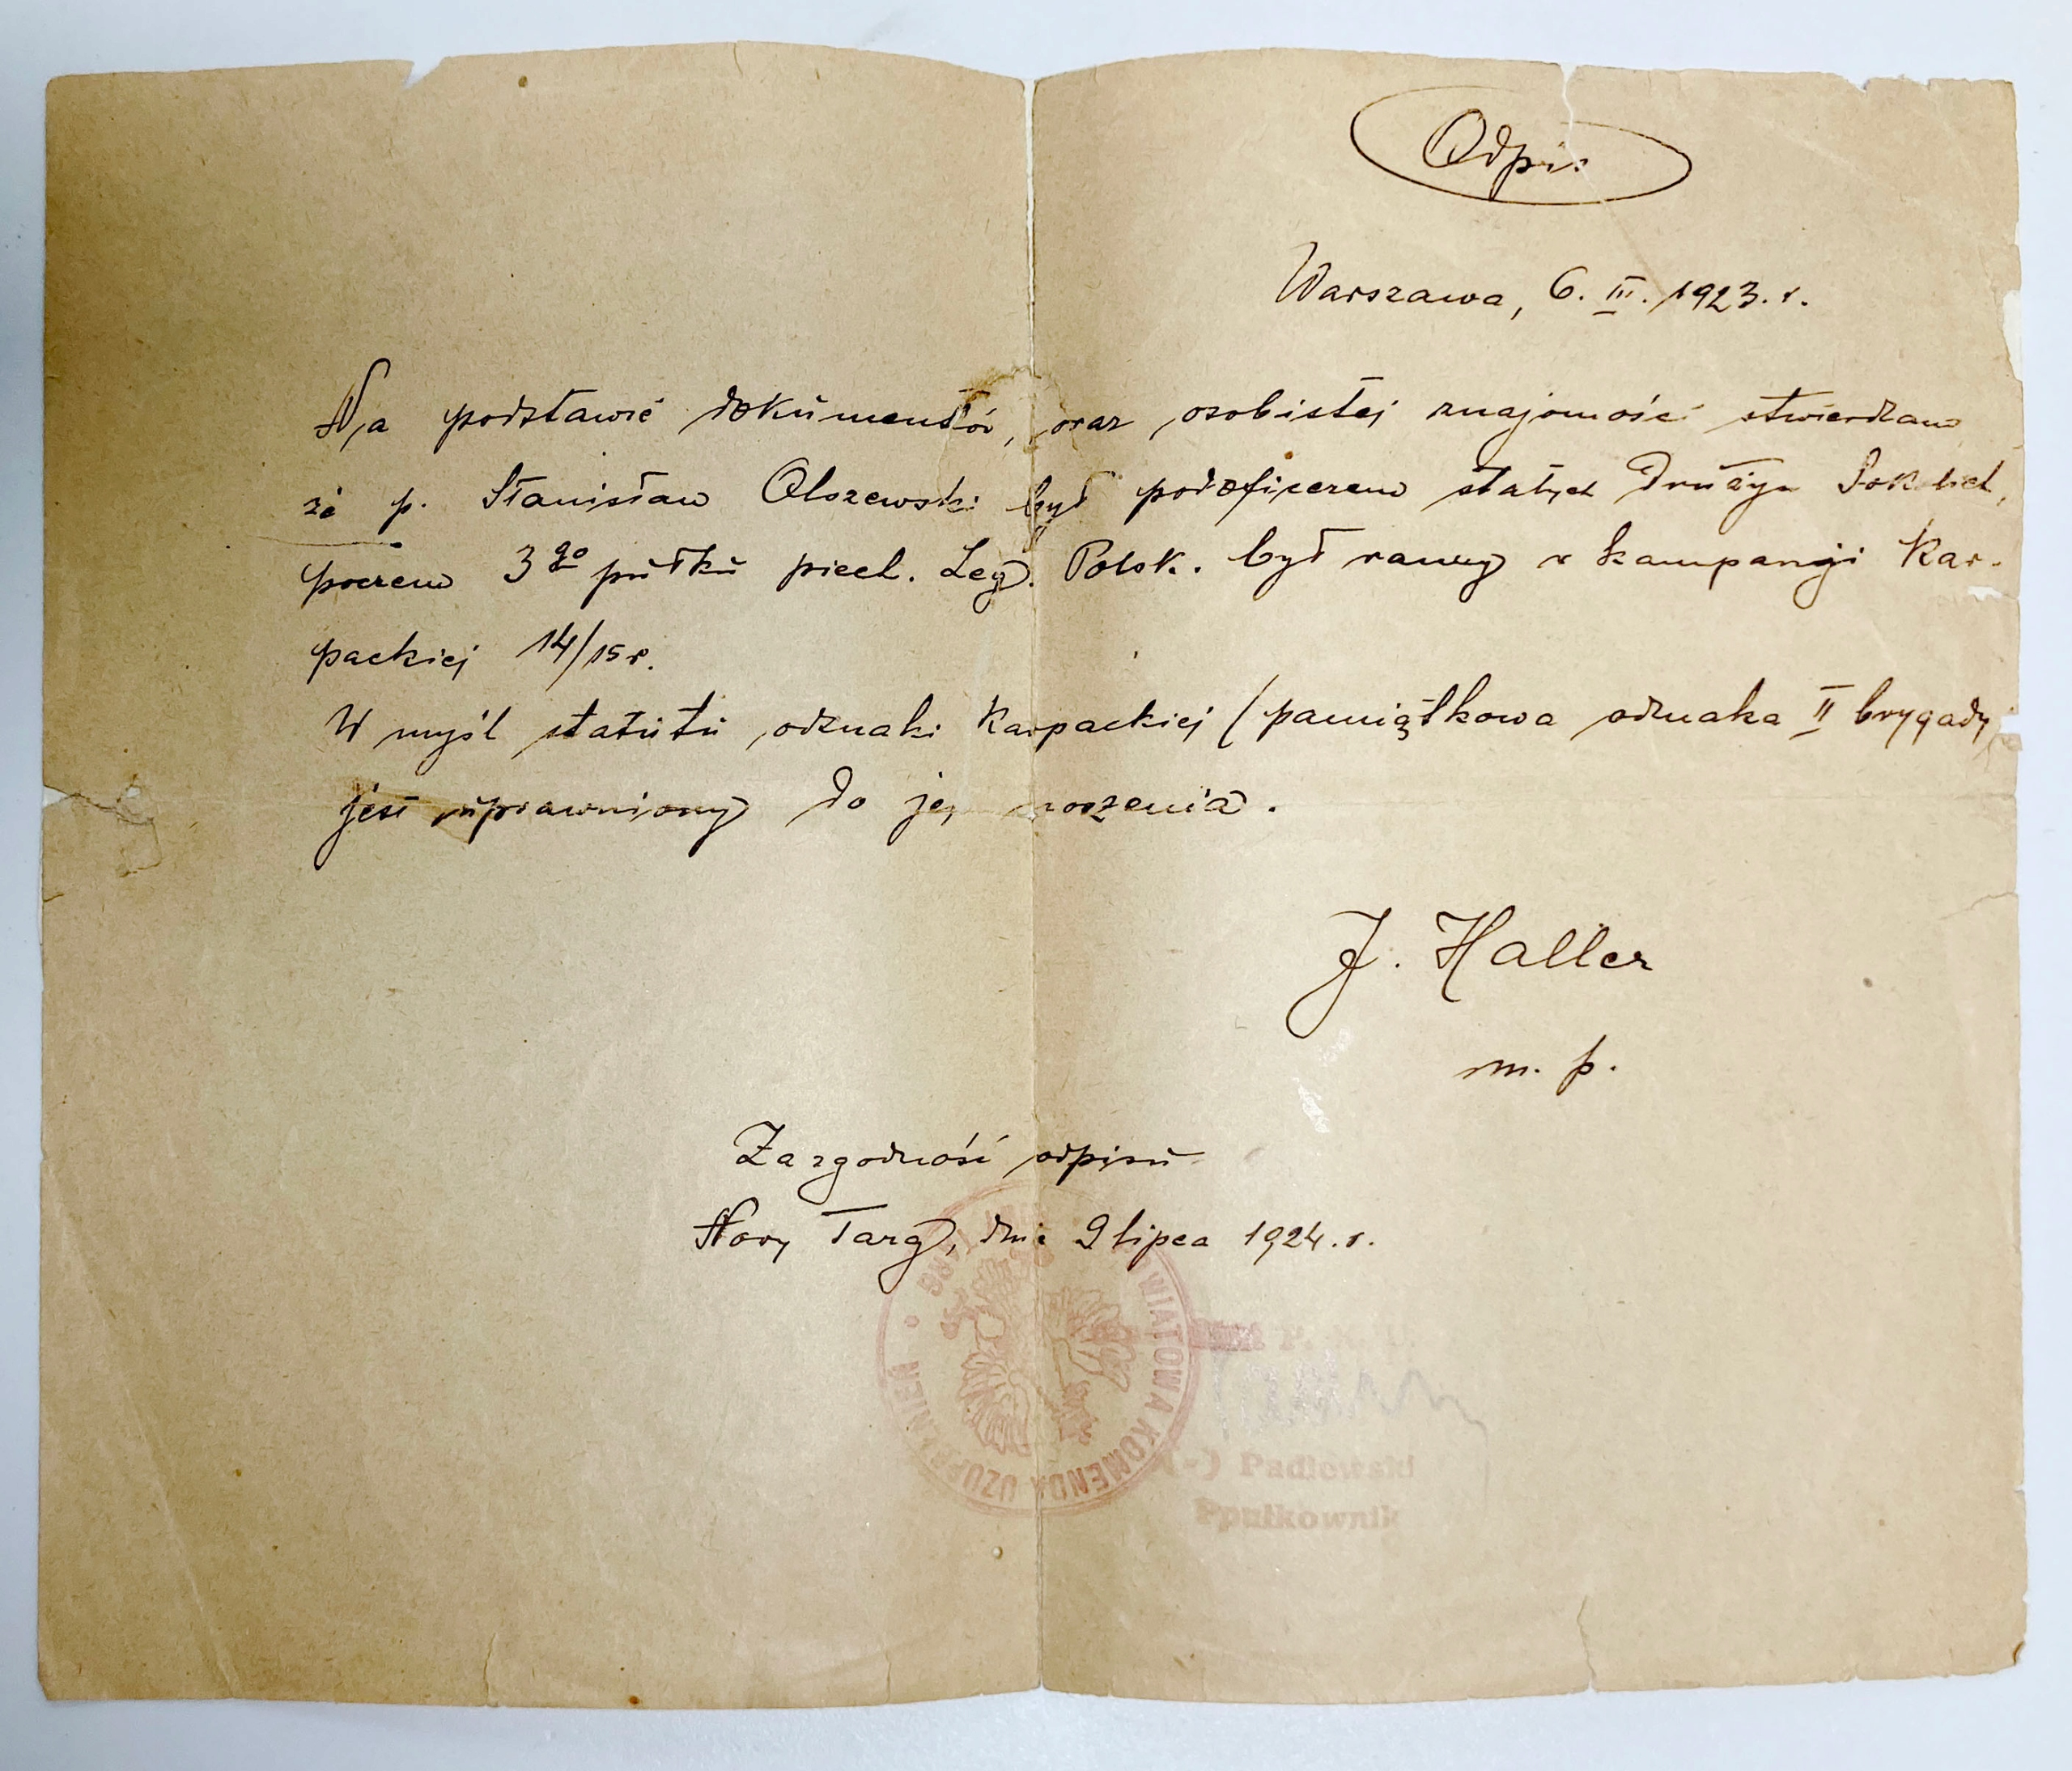 Odpis
Warszawa, 6. III. 1923. r.
Na podstawie dokumentów, oraz osobistej znajomości stwierdzam
że p. Stanisław Olszewski był podoficerem stałych Drużyn Sokolich,
poczem 3go pułku piech. Leg. Polsk. był ranny w kampanji Kar-
packiej 14/15 r.
W myśl statutu odznaki Karpackiej (pamiątkowa odznaka II brygady)
jest uprawniony do jej noszenia.
J. Haller
m. p.
Za zgodność odpisu
Nowy Targ, dnia 9 lipca 1924. r.
POWIATOWA KOMENDA UZUPEŁNIEŃ TARG
P. K. U.
(-) Padlewski
Ppułkownik